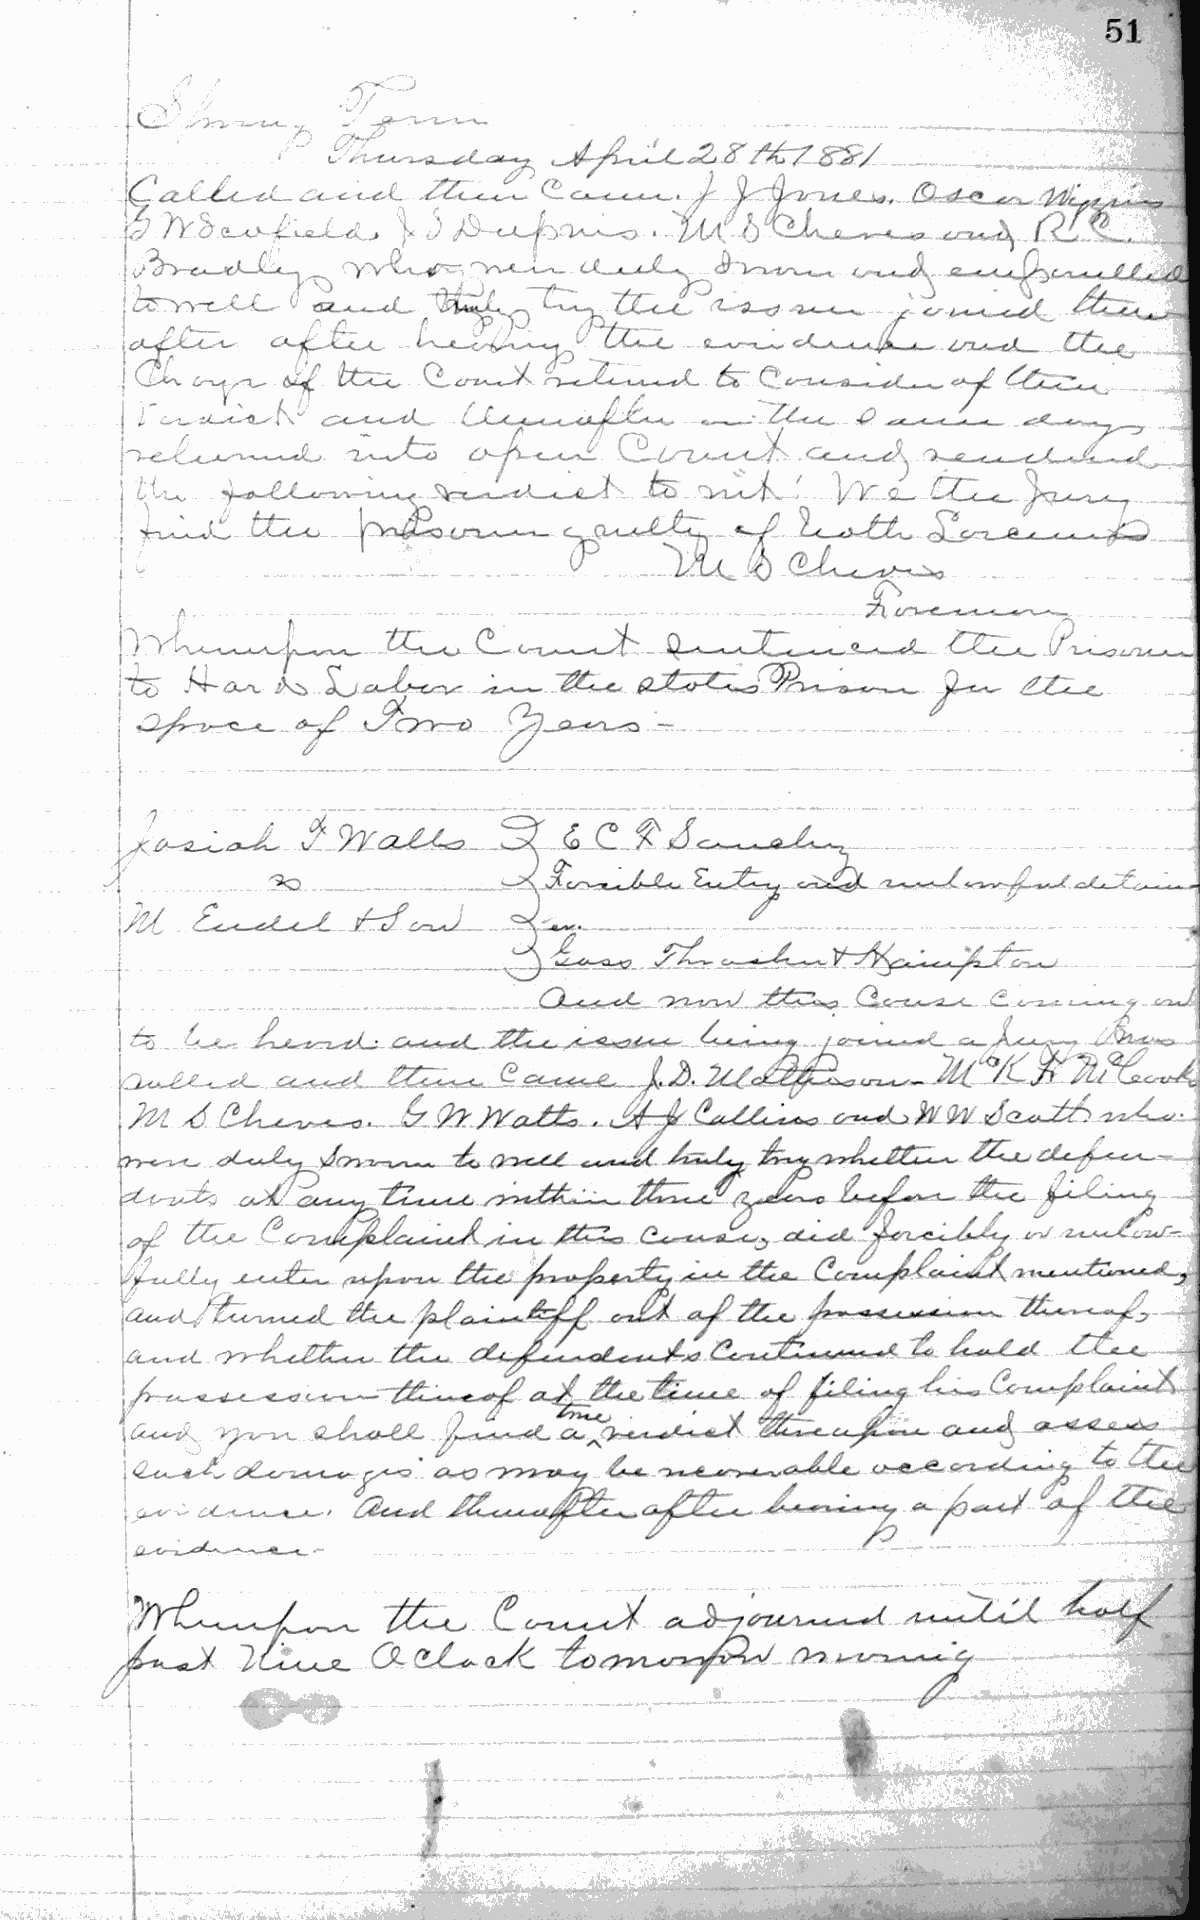 51
Spring Term
Thursday April 28th 1881
Called and then Came. J J Jones. Oscar Wiggins
G W Scofield. J S Dupuis. M S Cheves and R. C.
Bradley who were duly sworn and empanelled
to well and truly try the issue joined then
after after hearing the evidence and the
Charge of the Court retired to Consider of their
verdict and thereafter on the same day
returned into open Court and rendered
the following verdict to wit: We the Jury
find the prisoner guilty of both Larcenies
M S Cheves
Foreman
Whereupon the Court sentenced the Prisoner
to Hard Labor in the states Prison for the
space of Two Years-
Josiah T Walls E C F Sanchez
vs Forcible Entry and unlawful detainer
M Endel & Son
Goss Thrasher & Hampton
And now this Cause coming on
to be heard and the issue being joined a Jury was
called and then Came J. D. Matheson- McK F McCook
M S Cheves. G W Watts. A J Collins and W W Scott who
were duly sworn to well and truly try whether the defen-
dants at any time within three years before the filing
of the Complaint in this cause, did forcibly or unlaw-
fully enter upon the property in the Complaint mentioned,
and turned the plaintiff out of the possession thereof,
and whether the defendants Continued to hold the
possession thereof at the time of filing his Complaint
and you shall find a true verdict thereupon and assess
such damages as may be recoverable according to the
evidence. And thereafter after hearing a part of the
evidence-
Whereupon the Court adjourned until half
past Nine O Clock tomorrow morning